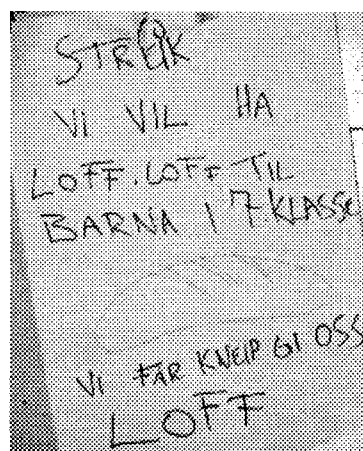 STREIK
VI VIL HA
LOFF. LOFF TIL
BARNA I 7 KLASSE
VI FÅR KNEIP GI OSS
LOFF